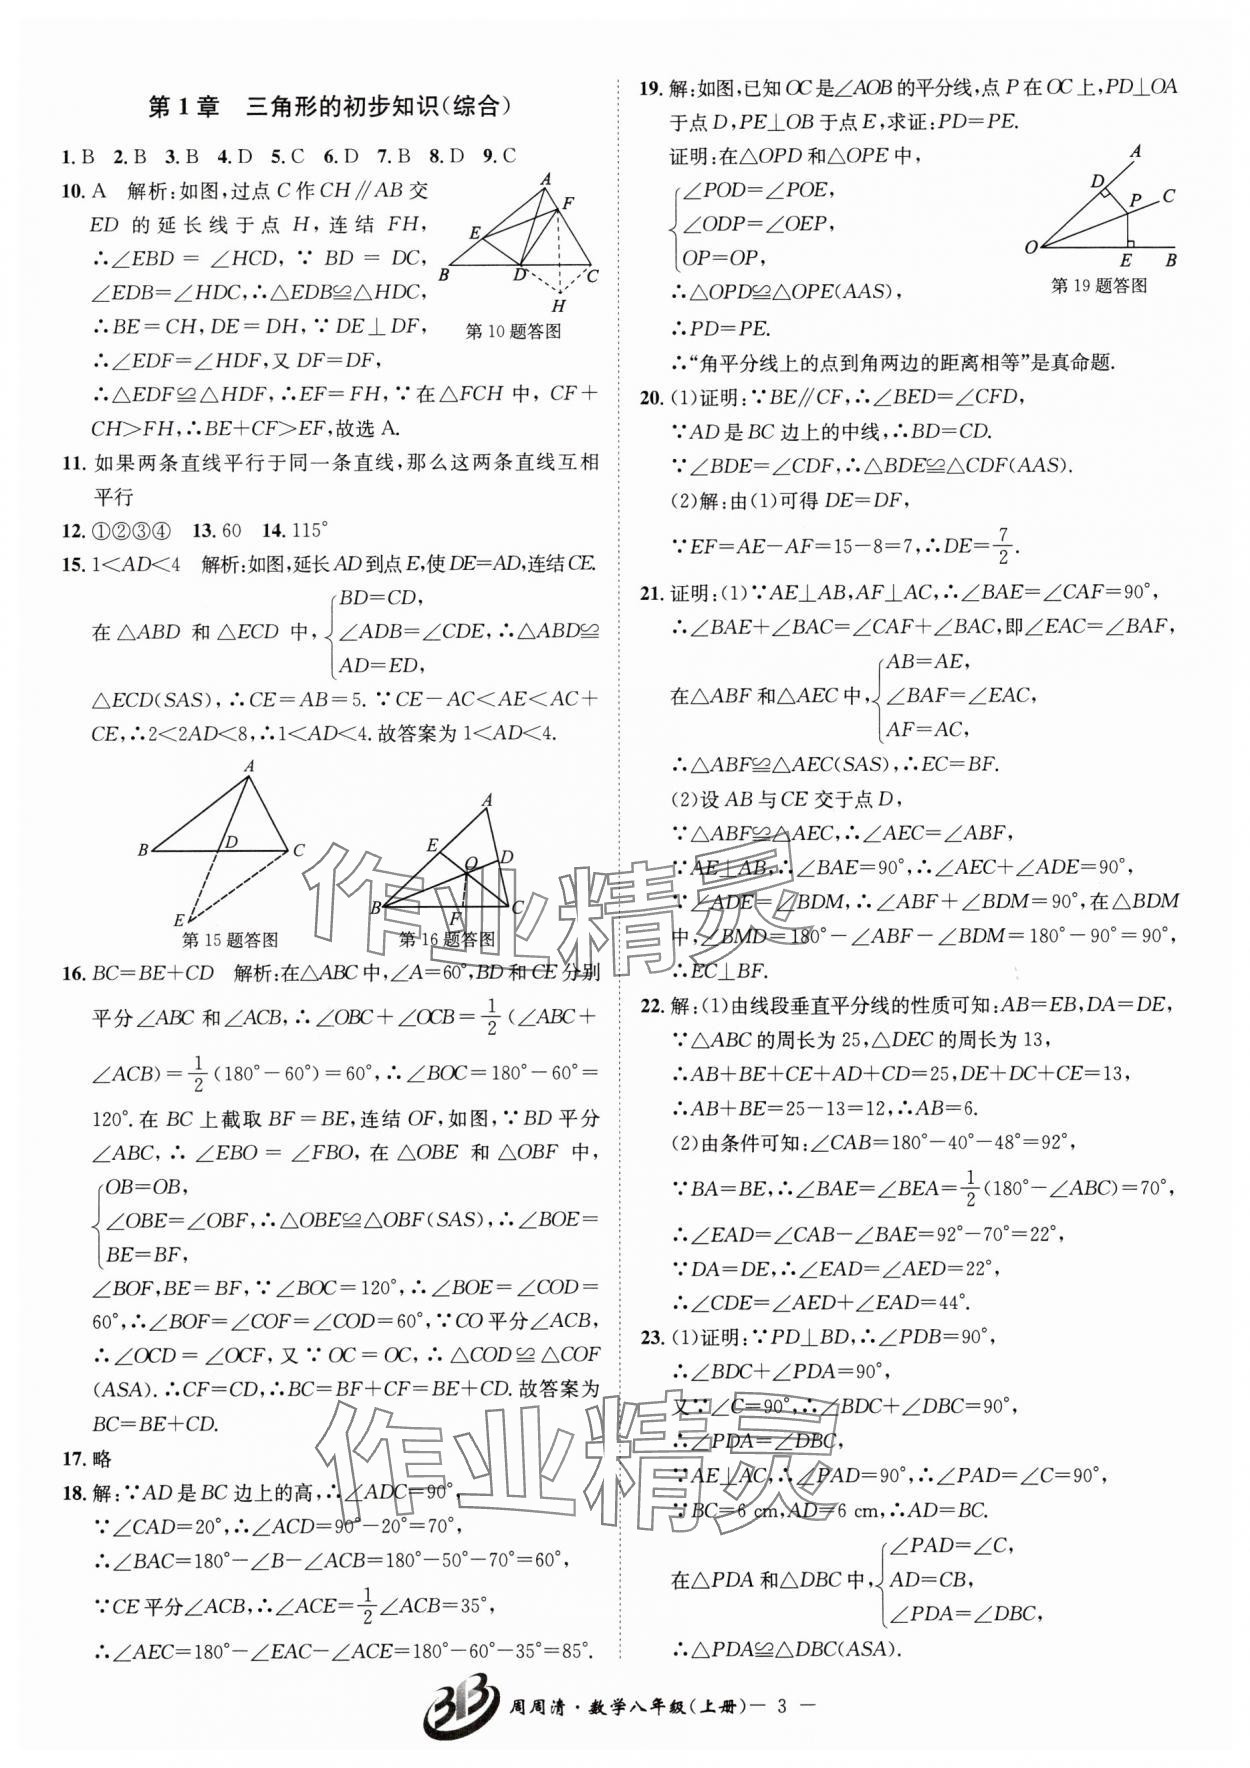 第1章 三角形的初步知识(综合)
1. B 2. B 3. B 4. D 5. C 6. D 7. B 8. D 9. C
10. A 解析:如图,过点C作CH∥AB交
ED的延长线于点H,连结FH,
∴∠EBD=∠HCD,∵BD=DC,
∠EDB=∠HDC,∴△EDB≌△HDC,
∴BE=CH,DE=DH,∵DE⊥DF,
∴∠EDF=∠HDF,又DF=DF,
∴△EDF≌△HDF,∴EF=FH,∵在△FCH中,CF+
CH>FH,∴BE+CF>EF,故选A.
A
F
E
B
D
C
H
第10题答图
11. 如果两条直线平行于同一条直线,那么这两条直线互相
平行
12. ①②③④ 13. 60 14. 115°
15. 1<AD<4 解析:如图,延长AD到点E,使DE=AD,连结CE.
BD=CD,
在△ABD和△ECD中,∠ADB=∠CDE,∴△ABD≌
AD=ED,
△ECD(SAS),∴CE=AB=5.∵CE-AC<AE<AC+
CE,∴2<2AD<8,∴1<AD<4.故答案为1<AD<4.
A
B
D
C
E
第15题答图
A
E
D
O
B
F
C
第16题答图
16. BC=BE+CD 解析:在△ABC中,∠A=60°,BD和CE分别
平分∠ABC和∠ACB,∴∠OBC+∠OCB=1/2(∠ABC+
∠ACB)=1/2(180°-60°)=60°,∴∠BOC=180°-60°=
120°.在BC上截取BF=BE,连结OF,如图,∵BD平分
∠ABC,∴∠EBO=∠FBO,在△OBE和△OBF中,
OB=OB,
∠OBE=∠OBF,∴△OBE≌△OBF(SAS),∴∠BOE=
BE=BF,
∠BOF,BE=BF,∵∠BOC=120°,∴∠BOE=∠COD=
60°,∴∠BOF=∠COF=∠COD=60°,∵CO平分∠ACB,
∴∠OCD=∠OCF,又∵OC=OC,∴△COD≌△COF
(ASA).∴CF=CD,∴BC=BF+CF=BE+CD.故答案为
BC=BE+CD.
17. 略
18. 解:∵AD是BC边上的高,∴∠ADC=90°,
∵∠CAD=20°,∴∠ACD=90°-20°=70°,
∴∠BAC=180°-∠B-∠ACB=180°-50°-70°=60°,
∵CE平分∠ACB,∴∠ACE=1/2∠ACB=35°,
∴∠AEC=180°-∠EAC-∠ACE=180°-60°-35°=85°.
19. 解:如图,已知OC是∠AOB的平分线,点P在OC上,PD⊥OA
于点D,PE⊥OB于点E,求证:PD=PE.
证明:在△OPD和△OPE中,
∠POD=∠POE,
∠ODP=∠OEP,
OP=OP,
∴△OPD≌△OPE(AAS),
∴PD=PE.
∴“角平分线上的点到角两边的距离相等”是真命题.
A
D
P
C
O
E
B
第19题答图
20. (1)证明:∵BE∥CF,∴∠BED=∠CFD,
∵AD是BC边上的中线,∴BD=CD.
∵∠BDE=∠CDF,∴△BDE≌△CDF(AAS).
(2)解:由(1)可得DE=DF,
∵EF=AE-AF=15-8=7,∴DE=7/2.
21. 证明:(1)∵AE⊥AB,AF⊥AC,∴∠BAE=∠CAF=90°,
∴∠BAE+∠BAC=∠CAF+∠BAC,即∠EAC=∠BAF,
AB=AE,
在△ABF和△AEC中,∠BAF=∠EAC,
AF=AC,
∴△ABF≌△AEC(SAS),∴EC=BF.
(2)设AB与CE交于点D,
∵△ABF≌△AEC,∴∠AEC=∠ABF,
∵AE⊥AB,∴∠BAE=90°,∴∠AEC+∠ADE=90°,
∵∠ADE=∠BDM,∴∠ABF+∠BDM=90°,在△BDM
中,∠BMD=180°-∠ABF-∠BDM=180°-90°=90°,
∴EC⊥BF.
22. 解:(1)由线段垂直平分线的性质可知:AB=EB,DA=DE,
∵△ABC的周长为25,△DEC的周长为13,
∴AB+BE+CE+AD+CD=25,DE+DC+CE=13,
∴AB+BE=25-13=12,∴AB=6.
(2)由条件可知:∠CAB=180°-40°-48°=92°,
∵BA=BE,∴∠BAE=∠BEA=1/2(180°-∠ABC)=70°,
∴∠EAD=∠CAB-∠BAE=92°-70°=22°,
∵DA=DE,∴∠EAD=∠AED=22°,
∴∠CDE=∠AED+∠EAD=44°.
23. (1)证明:∵PD⊥BD,∴∠PDB=90°,
∴∠BDC+∠PDA=90°,
又∵∠C=90°,∴∠BDC+∠DBC=90°,
∴∠PDA=∠DBC,
∵AE⊥AC,∴∠PAD=90°,∴∠PAD=∠C=90°,
∵BC=6 cm,AD=6 cm,∴AD=BC.
∠PAD=∠C,
在△PDA和△DBC中,AD=CB,
∠PDA=∠DBC,
∴△PDA≌△DBC(ASA).
作业精灵
作业精灵
周周清·数学八年级(上册)— 3 —